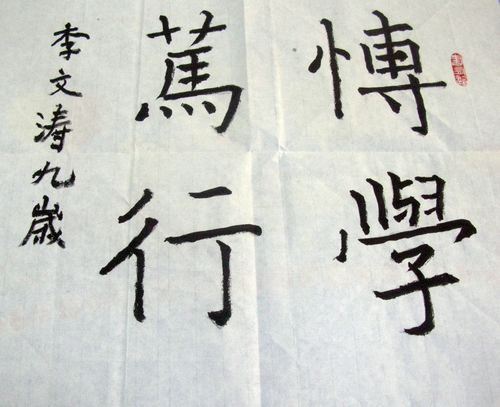 愽學
篤行
李文涛九歲